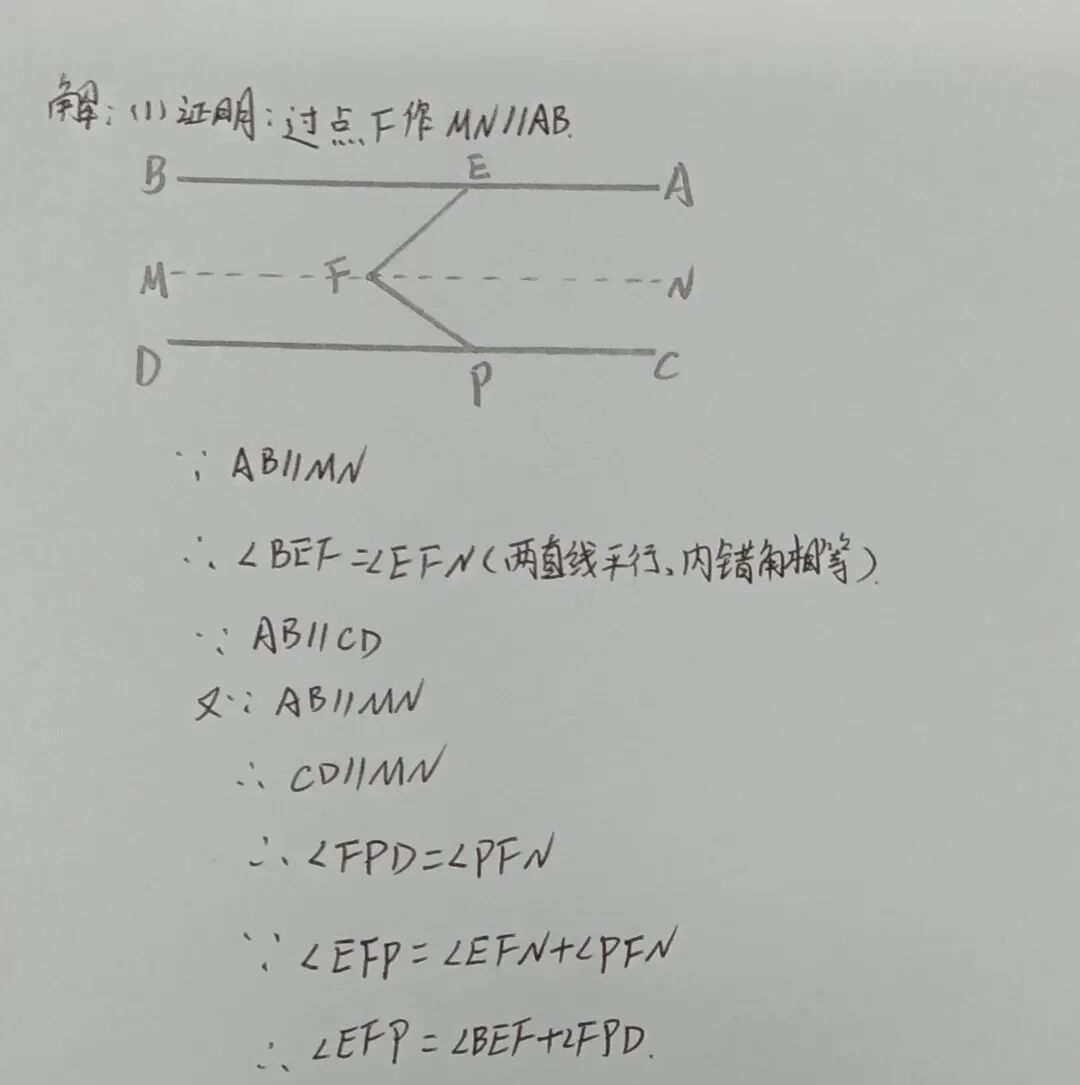 解:(1)证明:过点F作MN//AB.
B E A
M F N
D P C
∵ AB//MN
∴ ∠BEF=∠EFN(两直线平行、内错角相等).
∵ AB//CD
又∵ AB//MN
∴ CD//MN
∴ ∠FPD=∠PFN
∵ ∠EFP=∠EFN+∠PFN
∴ ∠EFP=∠BEF+∠FPD.